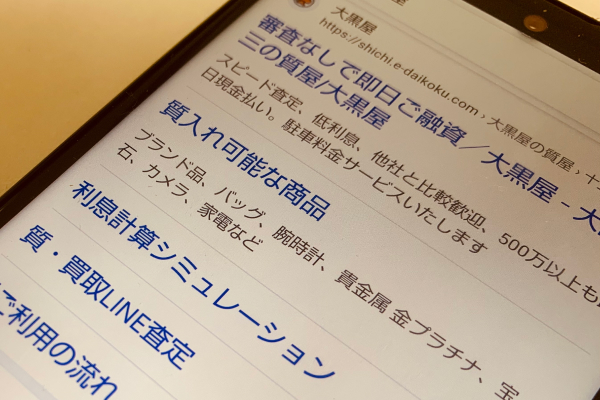 大黒屋
https://shichi.e-daikoku.com › 大黒屋の質屋 › 十
審査なしで即日ご融資／大黒屋 - 大
三の質屋/大黒屋
スピード査定、低利息、他社と比較歓迎、500万以上も
日現金払い。駐車料金サービスいたします
質入れ可能な商品
ブランド品、バッグ、腕時計、貴金属 金プラチナ、宝
石、カメラ、家電など
利息計算シミュレーション
質・買取LINE査定
ご利用の流れ